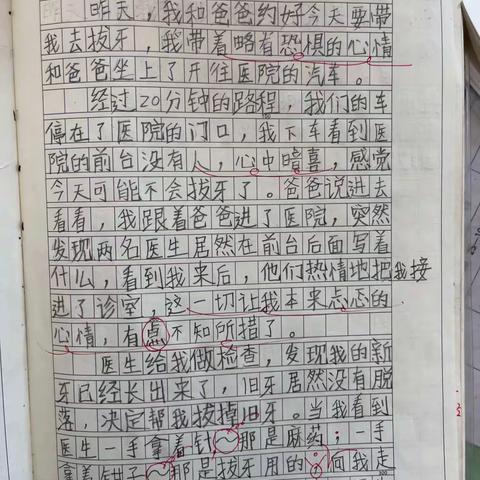 昨天，我和爸爸约好今天要带
我去拔牙，我带着略有恐惧的心情
和爸爸坐上了开往医院的汽车。
经过20分钟的路程，我们的车
停在了医院的门口，我下车看到医
院的前台没有人，心中暗喜，感觉
今天可能不会拔牙了。爸爸说进去
看看，我跟着爸爸进了医院，突然
发现两名医生居然在前台后面写着
什么，看到我来后，他们热情地把我接
进了诊室，这一切让我本来忐忑的
心情，有点不知所措了。
医生给我做检查，发现我的新
牙已经长出来了，旧牙居然没有脱
落，决定帮我拔掉旧牙。当我看到
医生一手拿着针～那是麻药；一手
拿着钳子～那是拔牙用的；向我走